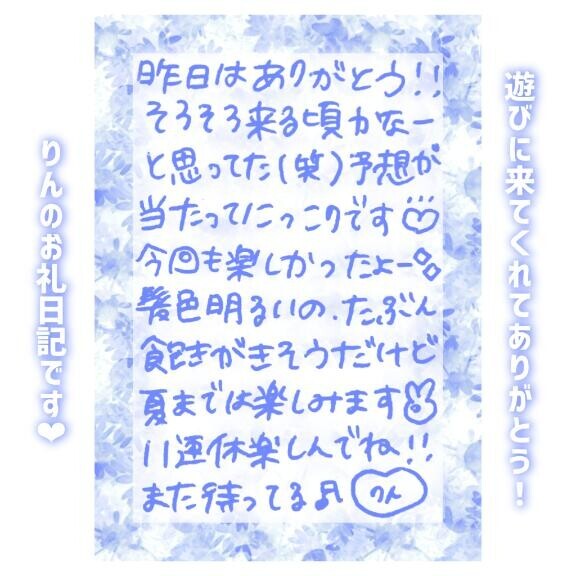 遊びに来てくれてありがとう!
昨日はありがとう!!
そろそろ来る頃かなー
と思ってた(笑)予想が
当たってにっこりです♡
今回も楽しかったよー
髪色明るいの、たぶん
飽きがきそうだけど
夏までは楽しみます
11連休楽しんでね!!
また待ってる♫
りん
りんのお礼日記です❤